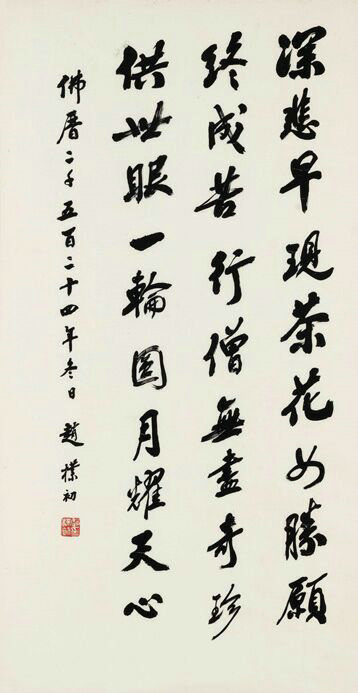 深悲早現茶花女勝願
終成苦行僧無盡奇珍
供世眼一輪圓月耀天心
佛曆二千五百二十四年冬日 趙樸初